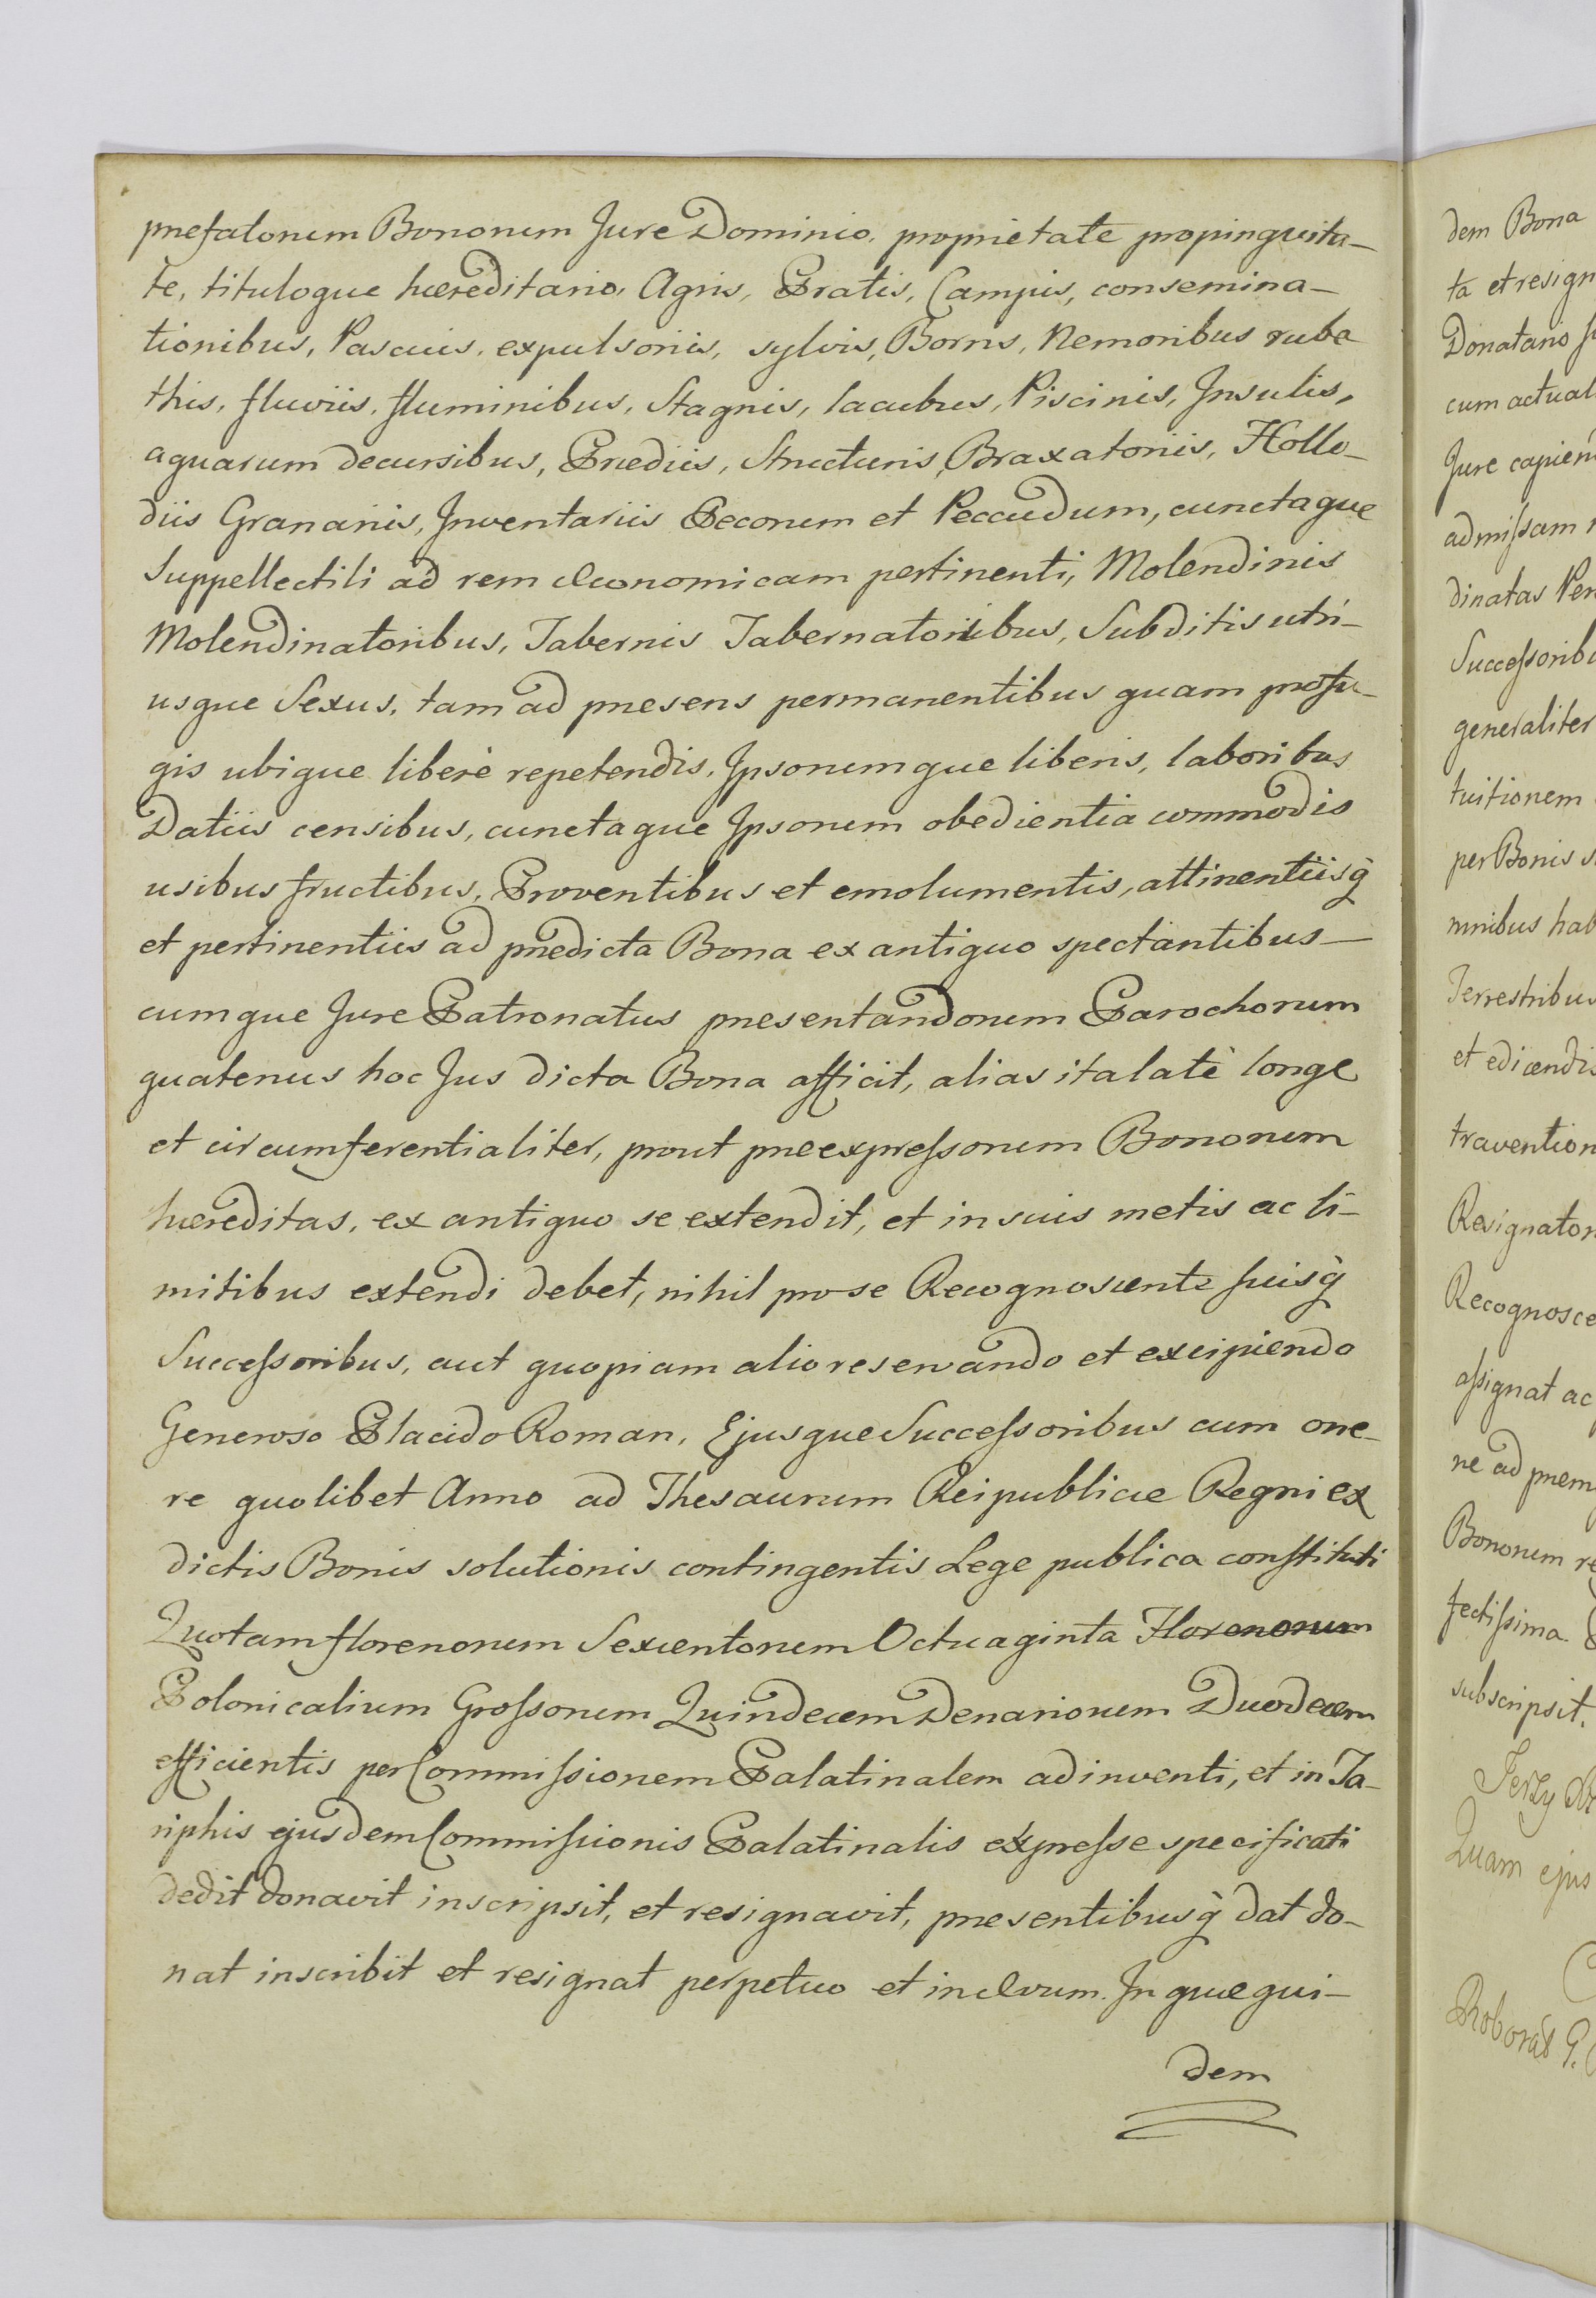 prefatorum Bonorum Jure Dominio, proprietate propinquita-
te, tituloque hæreditario, Agris, Pratis, Campis, consemina-
tionibus, Pascuis, expulsoriis, sylvis, Borris, Nemoribus rube
this, fluviis, fluminibus, Stagnis, lacubus, Piscinis, Insulis,
aquarum decursibus, Prediis, Structuris, Braxatoriis, Hollo-
diis Granariis, Inventariis Pecorum et Peccudum, cunctaque
Suppellectili ad rem Œconomicam pertinenti, Molendinis
Molendinatoribus, Tabernis Tabernatoribus, Subditis utri-
usque Sexus, tam ad presens permanentibus quam profu-
gis ubique liberè repetendis, Ipsorumque liberis, laboribus
Datiis censibus, cunctaque Ipsorum obedientia commodis
usibus fructibus, Proventibus et emolumentis, attinentiisq̀
et pertinentiis ad prædicta Bona ex antiquo spectantibus—
cumque Jure Patronatus presentandorum Parochorum
quatenus hoc Jus dicta Bona afficit, alias ita latè longe
et circumferentialiter, prout preexpreſsorum Bonorum
hæreditas, ex antiquo se extendit, et in suis metis ac li-
mitibus extendi debet, nihil pro se Recognoscente suisq̀
Succeſsoribus, aut quopiam alio reservando et excipiendo
Generoso Placido Roman, Ejusque Succeſsoribus cum one-
re quolibet Anno ad Thesaurum Reipublicæ Regni ex
dictis Bonis solutionis contingentis Lege publica conſtituti
Quotam florenorum Sexcentorum Octuaginta Florenorum
Polonicalium Groſsorum Quindecem Denariorum Duodecem
efficientis per Commiſsionem Palatinalem adinventi, et in Ta-
riphis ejusdem Commiſsionis Palatinalis expreſse specificati
dedit donavit inscripsit, et resignavit, presentibusq̀ dat do-
nat inscribit et resignat perpetuo et in ævum. In quæ qui-
dem
dem Bona
ta et resign
Donatario
cum actual
Jure capien
admiſsam
dinatas
Succeſsorib
generaliter
tuitionem
per Bonis
mnibus hab
Terrestribus
et edicendis
travention
Resignator
Recognosce
aſsignat ac
ne ad prem
Bonorum re
fectiſsima
subscripsit.
Jerzy
Quam ejus
Roborat